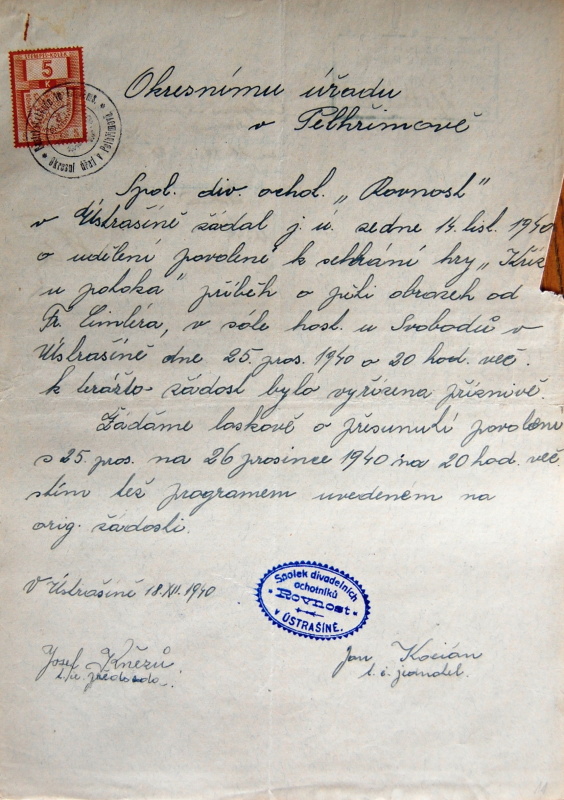 STEMPEL-KOLEK
5
K
Okresní úřad v Pelhřimově
Okresnímu úřadu
v Pelhřimově
Spol. div. ochot. „Rovnost"
v Ústrašíně žádal j. ú. ze dne 14. list. 1940
o udělení povolení k sehrání hry „Kříž
u potoka" příběh o pěti obrazech od
Fr. Cimlera, v sále host. u Svobodů v
Ústrašíně dne 25. pros. 1940 o 20 hod. več.
k žádost byla vyřízena příznivě.
Žádáme laskavě o přesunutí povolení
s 25. pros. na 26 prosince 1940 na 20 hod. več.
s tím též programem uvedeném na
orig. žádosti.
V Ústrašíně 18.XII.1940
Spolek divadelních
ochotníků
Rovnost
v ÚSTRAŠÍNĚ.
Josef Kněžů
t. č. předseda.
Jan Kocián
t. č. jednatel.